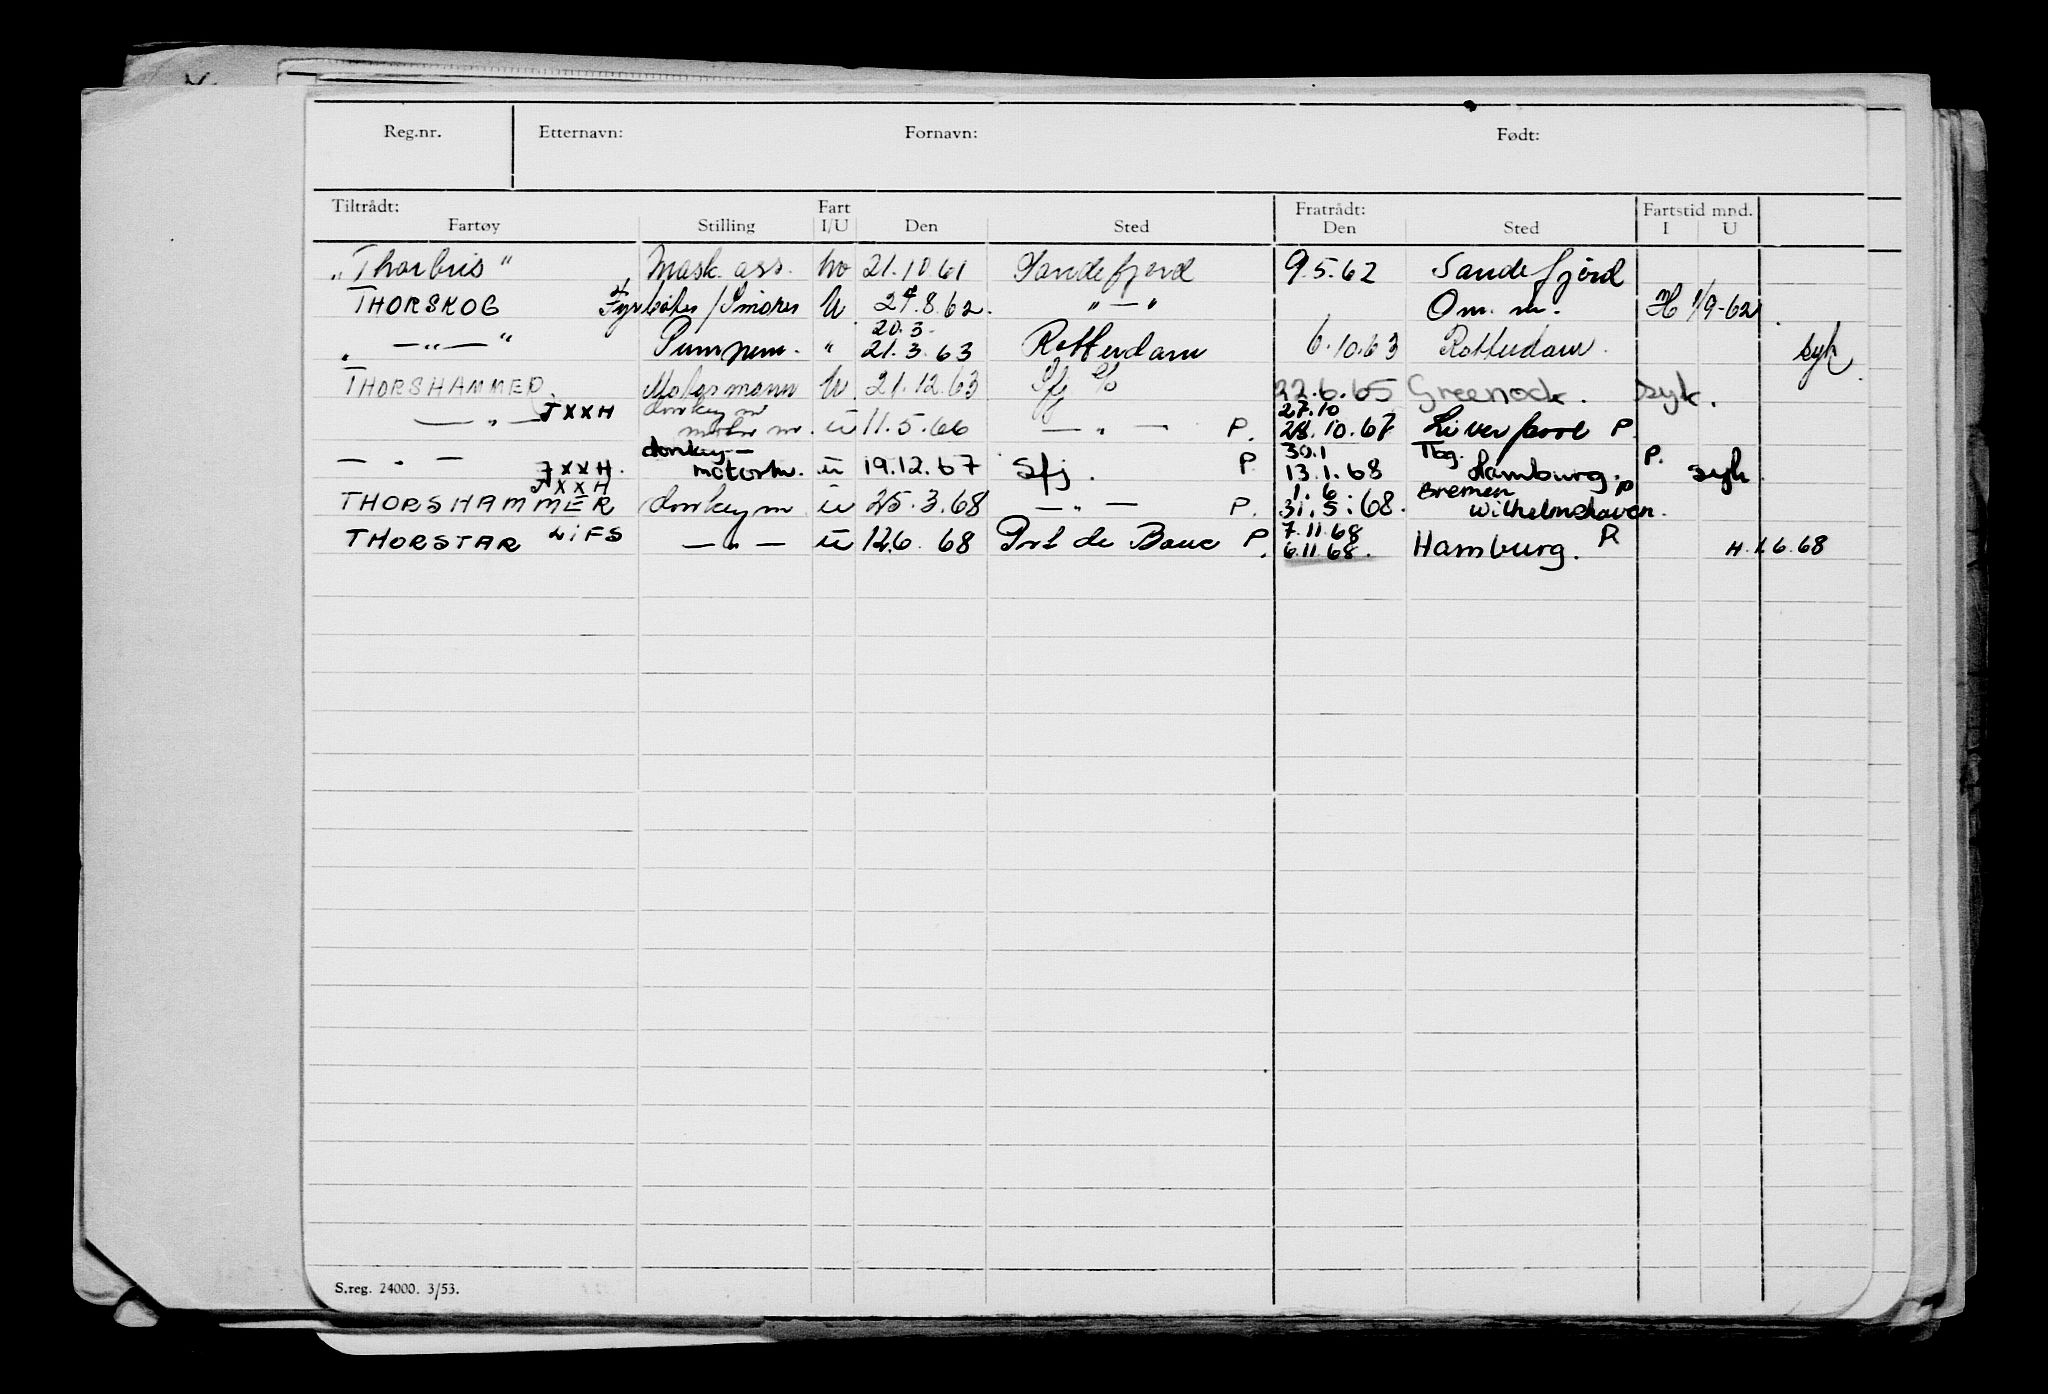 Reg.nr. Etternavn: Fornavn: Født:
Tiltrådt: Fart Fratrådt: Fartstid mnd.
Fartøy Stilling I/U Den Sted Den Sted I U
„Thorbris" Mask. ass. 21.10.61 Sandefjord 9.5.62 Sandefjord
THORSKOG Fyrbøter/Smører U 27.8.62. „—" Om. m. H 1/9-62
20.3.
„ —„— " Pumpem. " 21.3.63 Rotterdam 6.10.63 Rotterdam. syk
THORSHAMMER Motormann U 21.12.63 Sfj 22.6.65 Greenock. syk.
JXXH donkey m 27.10
— „ — motor m. ü 11.5.66 — „ — P. 28.10.67 Liverpool P.
donkey— 30.1 Tbg. P.
— „ — JXXH. motorm. ü 19.12.67 Sfj. P 13.1.68 Hamburg. syk.
JXXH 1.6 Bremen P
THORSHAMMER donkey m ü 25.3.68 — „ — P. 31.5.68. Wilhelmshaven.
LIFS 7.11.68
THORSTAR — „ — ü 12.6.68 Port de Bouc P. 6.11.68. Hamburg. P. H. 1.6.68
S.reg. 24000. 3/53.